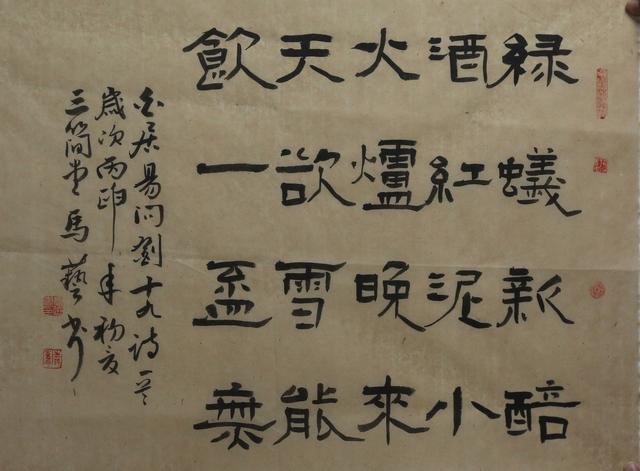 緑蟻新醅
酒紅泥小
火爐晚來
天欲雪能
飲一盃無
白居易问劉十九詩一首
歲次丙申年初夏
三簡堂馬藝书